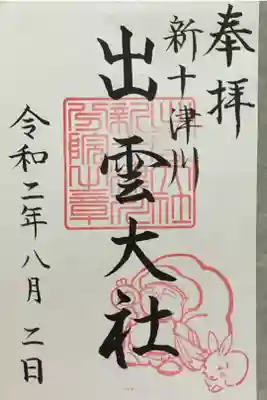 奉拝
新十津川
出雲大社
令和二年八月二日